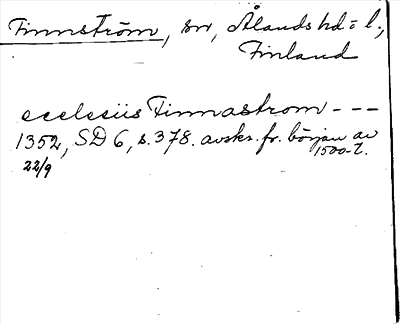 Finnström, sn, Ålands hd o l.,
Finland
ecclesiis Finnastrom - - -
1352, SD 6, s. 378. avskr. fr. början av
1500-t.
22/9